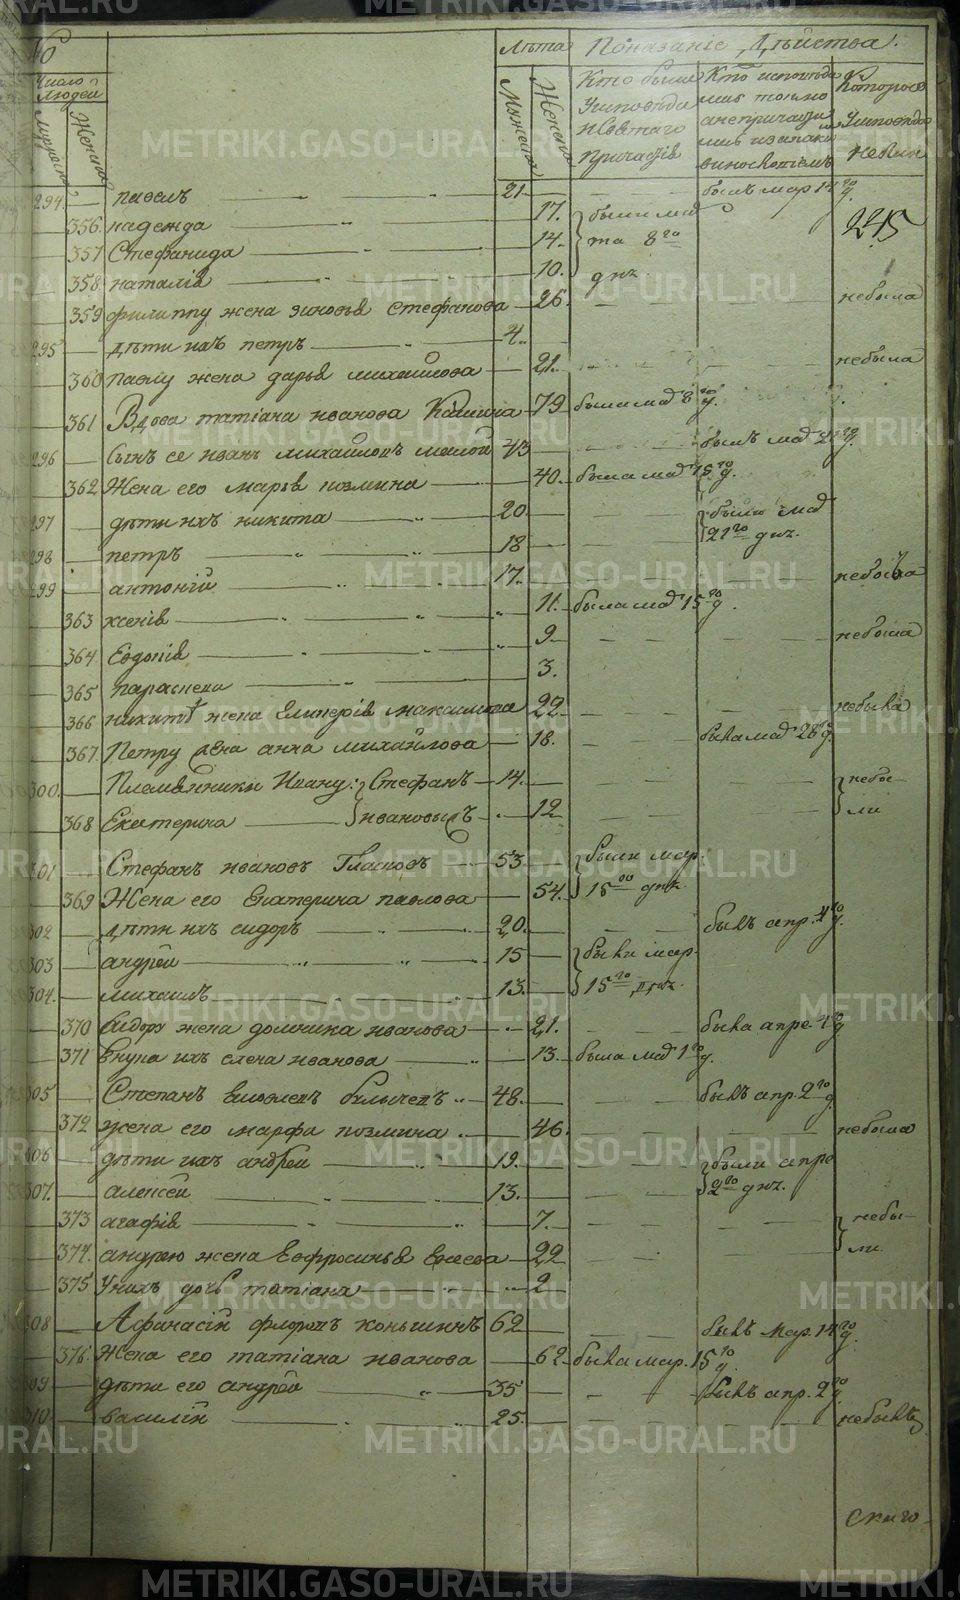 № Лѣта Показаніе Дѣйства.
Число Людей Мужеска Женска Мужеска Женска Кто были Уисповѣди и Свѣтаго Причастія Кто исповѣда лись токмо а непричащались изапаки виносвѣтіемъ Которые Уисповѣди небыли
294 павелъ 21 былъ мар 14го д.
356. надежда 17. были мая 245
357 Стефанида 14. та 8го
358. наталія 10. днъ.
359 филиппу жена зиновья стефанова 26. небыла
295 дѣти ихъ петръ 4.
360 павлу жена дарья михайлова 21. небыла
361 Вдова татіана иванова 79 была мар 8го д.
296 Сынъ ее иванъ михайловъ малой 43 былъ мар 21го д.
362 Жена его марья козмина 40. была мар 15го д.
297 дѣти ихъ никита 20 были мар
298 петръ 18 21го днъ.
299 антоній 17. небыла
363 ксенія 11. была мар 15го д.
364 Евдокія 9 небыла
365 параскева 3.
366 никитѣ жена Гликерія максимова 22 небыла
367. Петру жена анна михайлова 18. была мар 28го д.
300. Племянники Ивану: Стефанъ 14. небы-
368 Екатерина ивановыхъ 12 ли
301 Стефанъ ивановъ 53 были мар.
369 Жена его Екатерина павлова 54. 15го днъ.
302 дѣти ихъ сидоръ 20. былъ апр. 4го д.
303 андрей 15 были мар.
304. михаилъ 13. 15го днъ.
370 Сидору жена домника иванова 21. была апре 4го д
371 Внука ихъ елена иванова 13. была мар 1го д.
305 Степанъ 48. былъ апр. 2го д.
372 жена его марфа козмина 46. небыла
306 дѣти ихъ андрей 19. были апре
307. алексей 13. 2го днъ.
373 агафія 7. небы-
374. андрею жена Евфросинья 22 ли.
375 Унихъ дочь татіана 2
308 Афанасій флоровъ коньгинъ 62 былъ мар. 14го д.
376. Жена его татіана иванова 62 была мар. 15го д.
309 дѣти его андрей 35 былъ апр. 2го д
310 василій 25. небылъ
METRIKI.GASO-URAL.RU